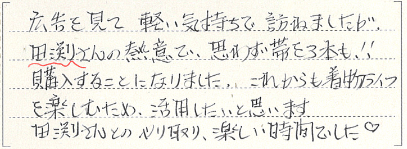 広告を見て 軽い気持ちで 訪ねましたが、
田渕さんの熱意で、思わず帯を3本も!!
購入することになりました。これからも着物ライフ
を楽しむため、活用したいと思います
田渕さんとのやり取り、楽しい時間でした♡